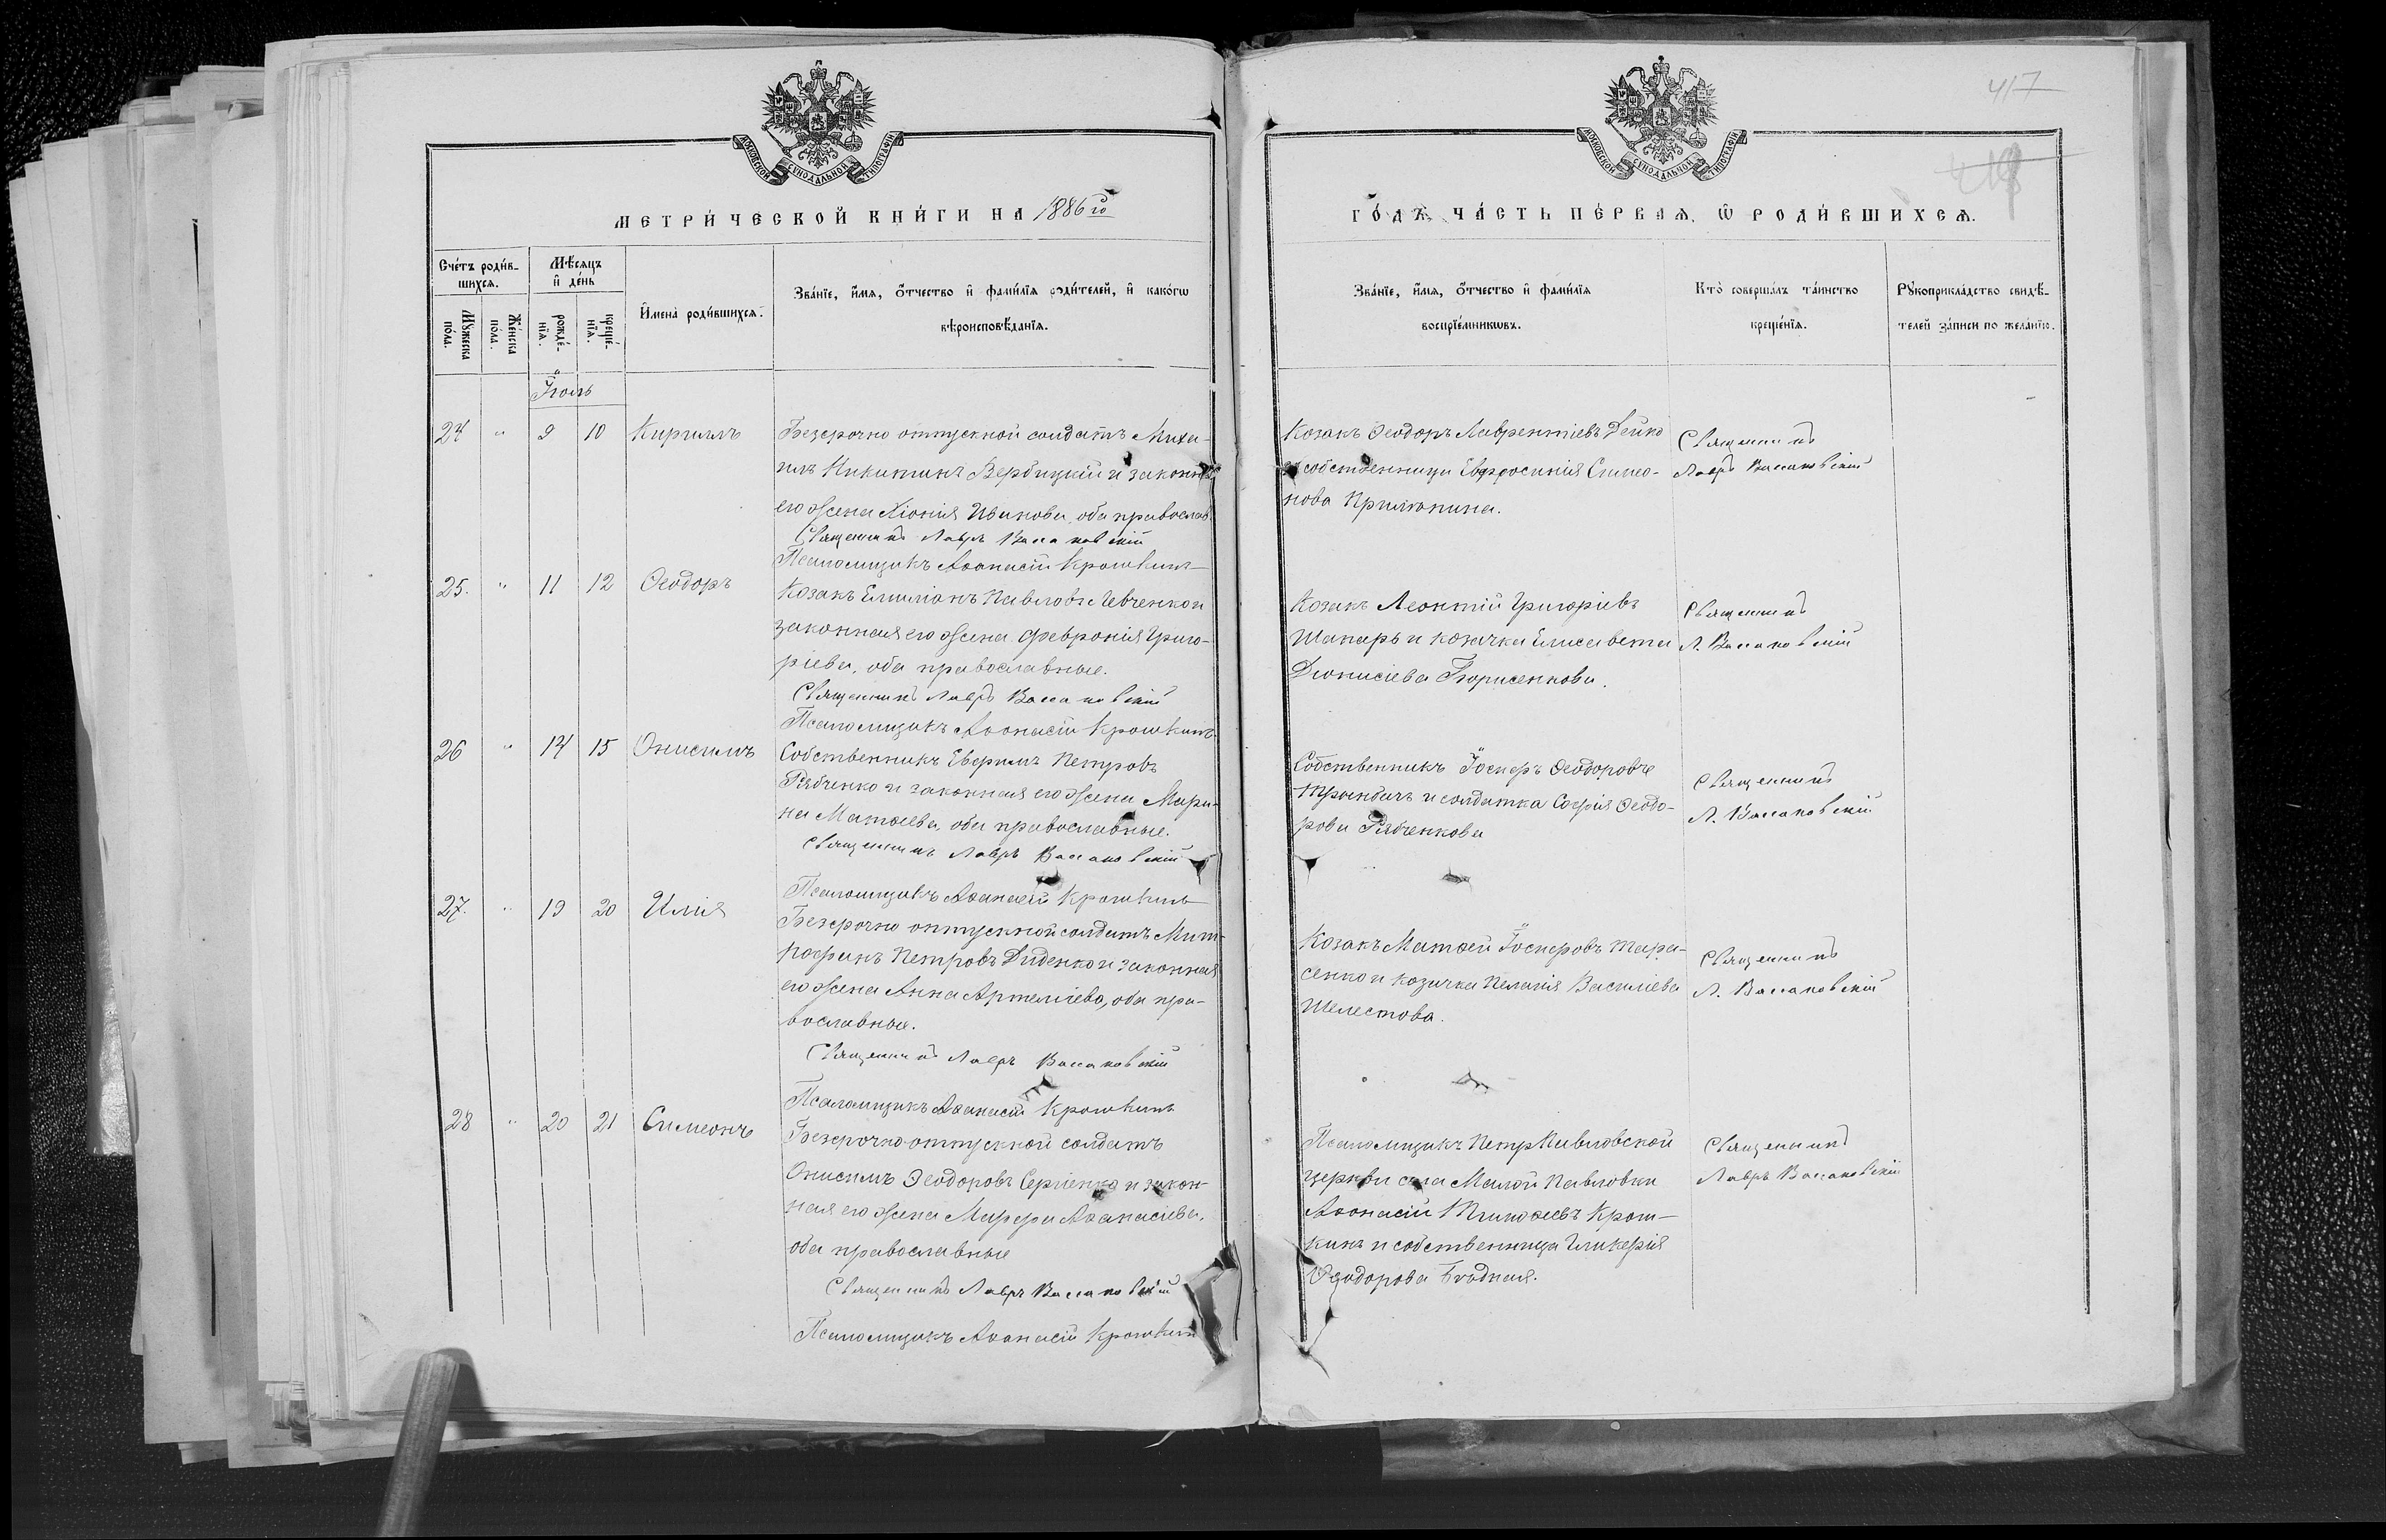 417
МОСКОВСКОЙ СУНОДАЛЬНОЙ ТИПОГРАФІИ
МОСКОВСКОЙ СУНОДАЛЬНОЙ ТИПОГРАФІИ
МЕТРИ́ЧЕСКОЙ КНИ́ГИ НА 1886 го
ГО́ДЪ, ЧА́СТЬ ПЕ́РВАЯ, Ѡ РОДИ́ВШИХСЯ.
Сче́тъ роди́в-
шихся.
Мѣ́сяцъ
и де́нь
Мꙋ́жеска
по́ла.
Же́нска
по́ла.
рожде́-
нїя.
креще́-
нїя.
Имена̀ роди́вшихся.
Зва́нїе, и́мя, о́тчество и фами́лїя роди́телей, и како́гѡ
вѣроисповѣ́данїя.
Зва́нїе, и́мя, о́тчество и фами́лїя
воспрїе́мникѡвъ.
Кто̀ соверша́лъ та́инство
креще́нїя.
Рꙋкоприкла́дство свидѣ́-
телей за́писи по жела́нїю.
Іюль
24 " 9 10 Кириллъ
Безсрочно отпускной солдатъ Миха-
илъ Никитинъ Вербицкій и законная
его жена Хіонія Иванова, оба православ.
Священникъ Лавръ Васаковскій
Псаломщикъ Аѳанасій Крошкинъ
Козакъ Ѳеодоръ Лаврентіевъ Дейко
и собственница Евфросинія Симео-
нова Прилюпина.
Священникъ
Лавръ Васаковскій
25. " 11 12 Ѳеодоръ
Козакъ Емиліанъ Павловъ Левченко и
законная его жена Феѵронія Григо-
ріева, оба православные.
Священникъ Лавръ Васаковскій
Псаломщикъ Аѳанасій Крошкинъ
Козакъ Леонтій Григоріевъ
Шапарь и козачка Елисавета
Діонисіева Борисенкова.
Священникъ
Л. Васаковскій
26 " 14 15 Онисимъ
Собственникъ Петровъ
Рябченко и законная его жена Мари-
на Матѳеева, оба православные.
Священникъ Лавръ Васаковскій
Псаломщикъ Аѳанасій Крошкинъ
Собственникъ Іосифъ Ѳеодоровъ
и солдатка Софія Ѳеодо-
рова Рябченкова
Священникъ
Л. Васаковскій
27. " 19 20 Илія
Безсрочно отпускной солдатъ Мит-
рофанъ Петровъ Диденко и законная
его жена Анна Артеміева, оба пра-
вославные.
Священникъ Лавръ Васаковскій
Псаломщикъ Аѳанасій Крошкинъ
Козакъ Матѳей Іосифовъ Тара-
сенко и козачка Пелагія Василіева
Шелестова.
Священникъ
Л. Васаковскій
28 " 20 21 Симеонъ
Безсрочно-отпускной солдатъ
Онисимъ Ѳеодоровъ Сергіенко и закон-
ная его жена Марфа Аѳанасіева,
оба православные
Священникъ Лавръ Васаковскій
Псаломщикъ Аѳанасій Крошкинъ
Псаломщикъ Петро-Павловской
церкви села Малой Павловки
Аѳанасій Тимоѳеевъ Крош-
кинъ и собственница Гликерія
Ѳеодорова Бѣдная.
Священникъ
Лавръ Васаковскій